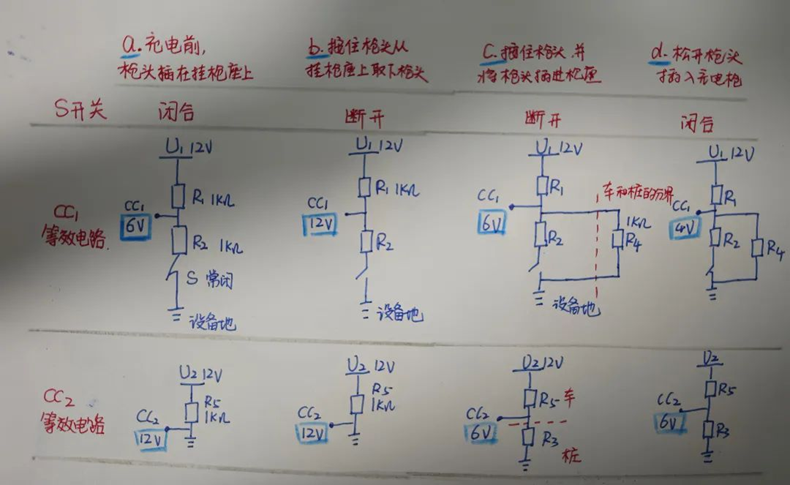 a. 充电前,
枪头插在挂枪座上
b. 摁住枪头从
挂枪座上取下枪头
c. 摁住枪头并
将枪头插进枪座
d. 松开枪头
插入充电枪
S开关 闭合 断开 断开 闭合
CC1
等效电路
U1 12V
CC1
6V
R1 1KΩ
R2 1KΩ
S 常闭
设备地
U1 12V
CC1
12V
R1 1KΩ
R2
设备地
U1 12V
CC1
6V
R1
R2
车和桩的分界
1KΩ
R4
设备地
U1 12V
CC1
4V
R1
R2
R4
CC2
等效电路
U2 12V
R5
1KΩ
CC2
12V
U2 12V
R5
1KΩ
CC2
12V
U2 12V
R5 车
CC2
6V
R3
桩
U2
R5
CC2
6V
R3